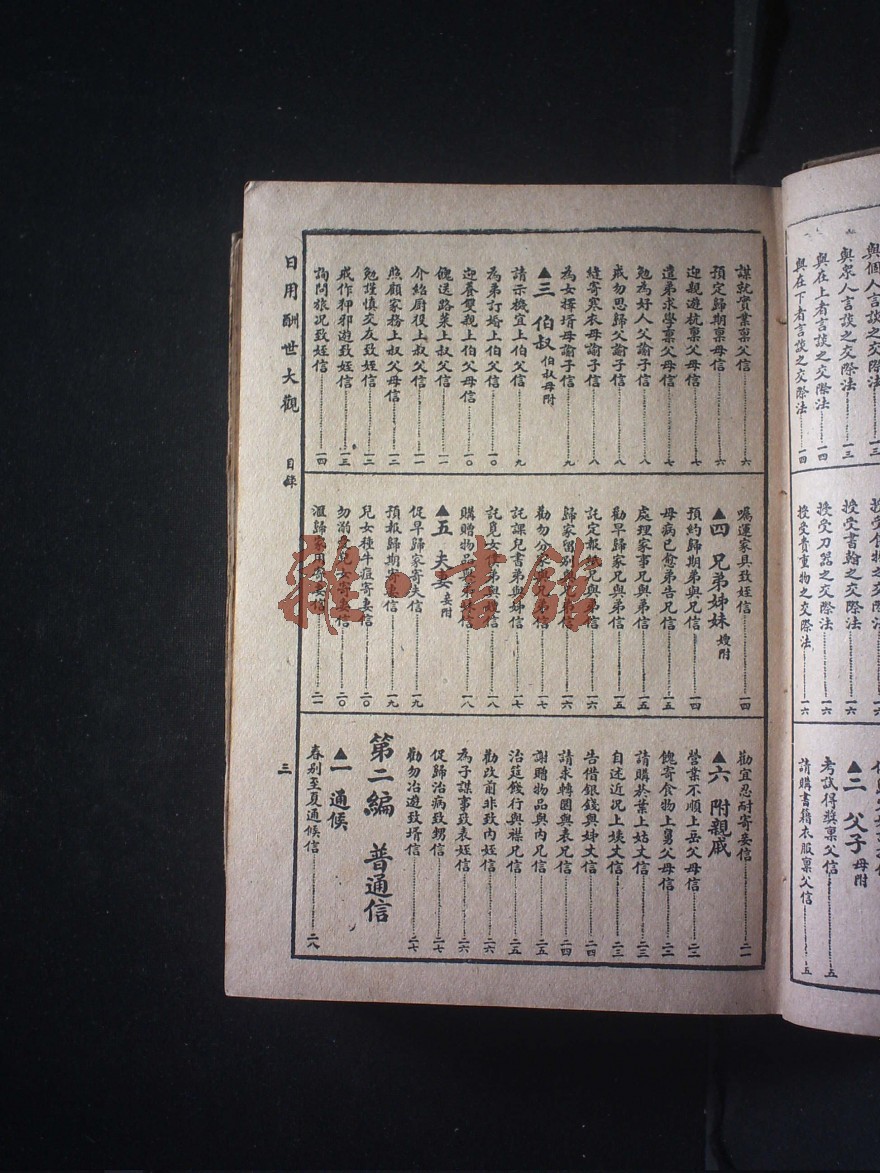 與個人言談之交際法……一三
與衆人言談之交際法……一三
與在上者言談之交際法……一四
與在下者言談之交際法……一四
授受書翰之交際法……一六
授受刀器之交際法……一六
授受貴重物之交際法……一六
▲二 父子 母附
考試得獎稟父信……五
請購書籍衣服稟父信……五
謀就實業稟父信……六
預定歸期稟母信……六
迎親遊杭稟父母信……七
遣弟求學稟父母信……七
勉為好人父諭子信……八
戒勿思歸父諭子信……八
縫寄寒衣母諭子信……八
為女擇壻母諭子信……九
▲三 伯叔 伯叔母附
請示機宜上伯父信……九
為弟訂婚上伯父信……一〇
迎養雙親上伯父母信……一〇
餽送路菜上叔父信……一一
介紹厨役上叔父信……一一
照顧家務上叔父母信……一二
勉謹慎交友致姪信……一二
戒作狎邪遊致姪信……一三
詢問旅况致姪信……一四
囑運家具致姪信……一四
▲四 兄弟姊妹 嫂附
預約歸期弟與兄信……一四
母病已愈弟告兄信……一五
處理家事兄與弟信……一五
勸早歸家兄與弟信……一五
託定報兄與弟信……一六
歸家留別與兄信……一六
勸勿分家與兄弟信……一七
託課兒書弟與姊信……一七
託覓女僕弟與嫂信……一八
購贈物品與弟妹信……一八
▲五 夫妻 妾附
促早歸家寄夫信……一九
預報歸期寄妻信……一九
兒女種牛痘寄妻信……二〇
勿溺愛兒女寄妻信……二〇
滙歸家用寄妻信……二一
勸宜忍耐寄妾信……二一
▲六 附親戚
營業不順上岳父母信……二二
餽寄食物上舅父母信……二二
請購菸葉上姑丈信……二三
自述近況上姨丈信……二三
告借銀錢與姊丈信……二四
請求轉圜與表兄信……二四
謝贈物品與內兄信……二五
治筵餞行與襟兄信……二五
勸改前非致內姪信……二六
為子謀事致表姪信……二六
促歸治病致甥信……二七
勸勿冶遊致壻信……二七
第二編 普通信
▲一 通候
春别至夏通候信……二八
日用酬世大觀 目錄
三
雜·書館